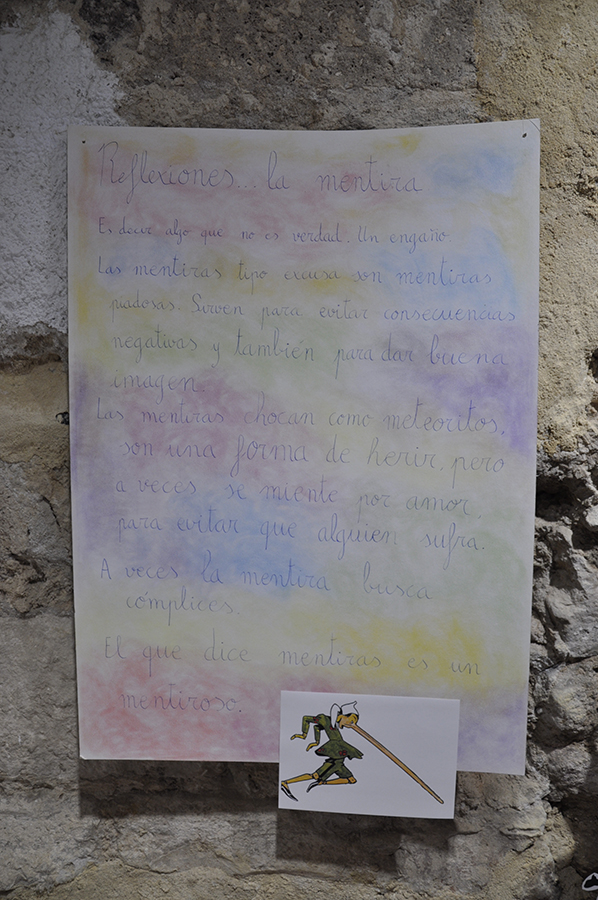 Reflexiones... la mentira
Es decir algo que no es verdad. Un engaño.
Las mentiras tipo excusa son mentiras
piadosas. Sirven para evitar consecuencias
negativas y también para dar buena
imagen.
Las mentiras chocan como meteoritos,
son una forma de herir, pero
a veces se miente por amor,
para evitar que alguien sufra.
A veces la mentira busca
cómplices.
El que dice mentiras es un
mentiroso.